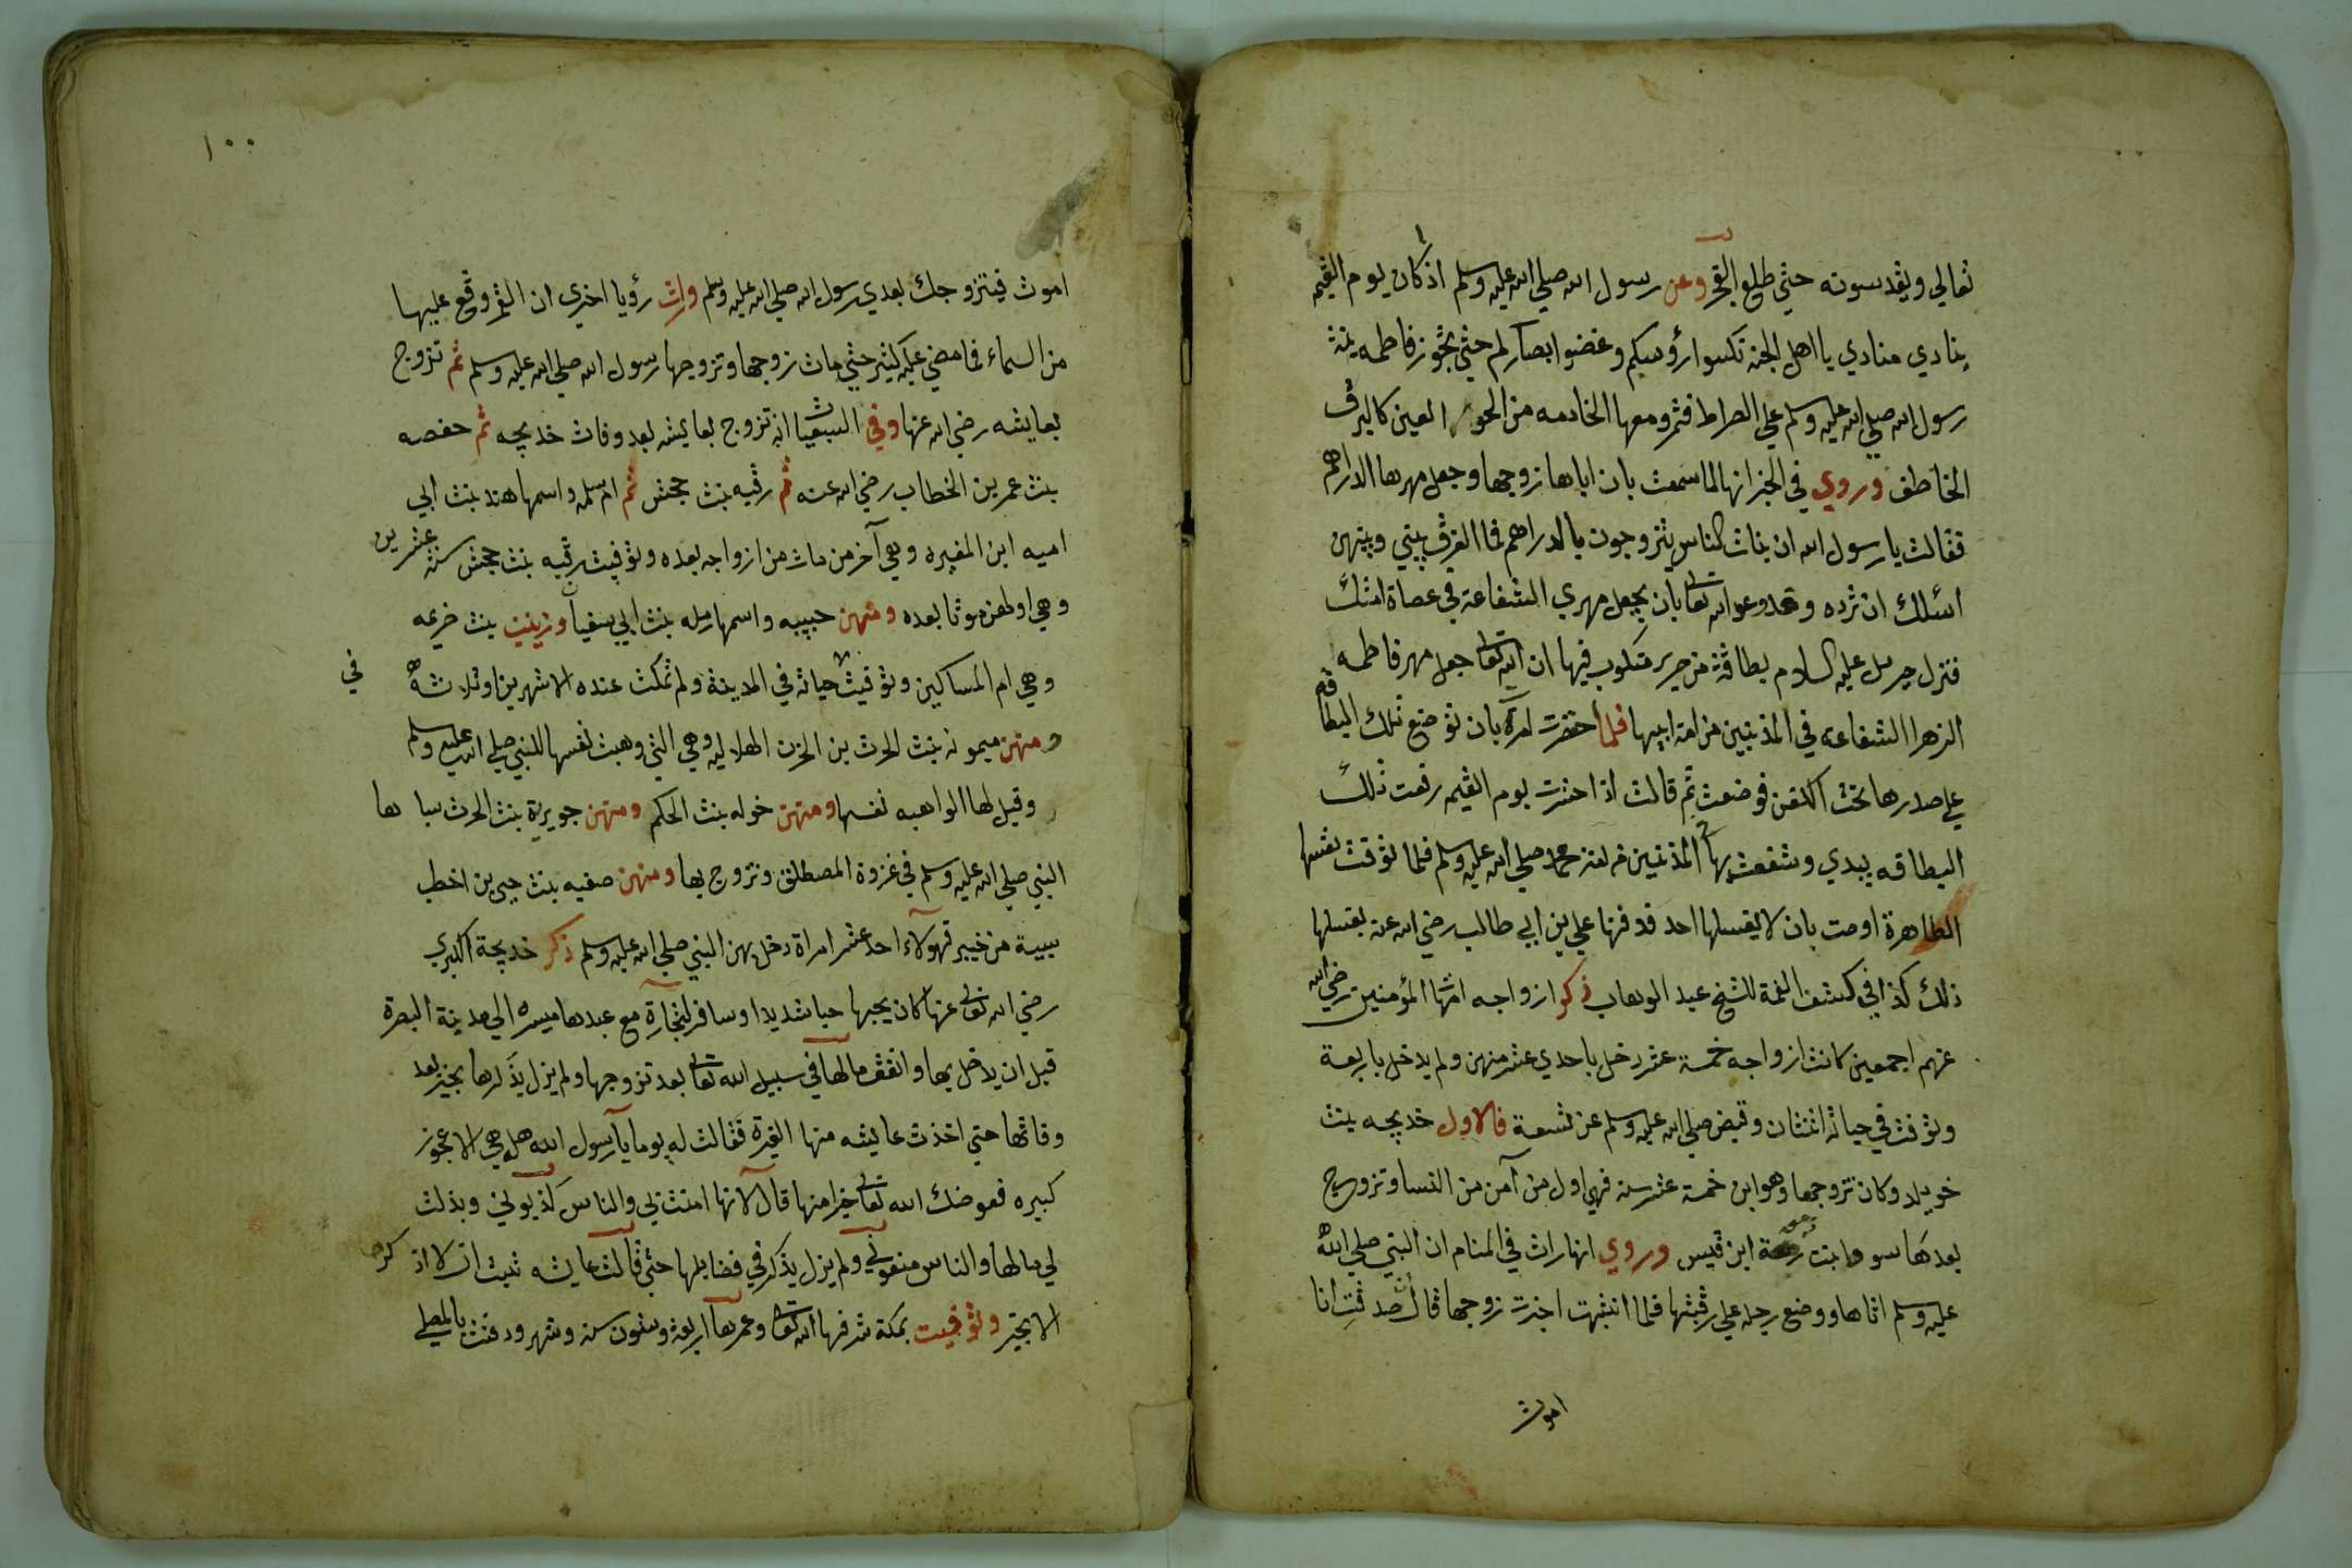 تعالي ويقدسونه حتي طلع الفجر وعن رسول الله صلي الله عليه وسلم اذا كان يوم القيمه
ينادي منادي يا اهل الجنة نكسوا رؤسكم وغضوا ابصاركم حتي تجوز فاطمه بنة
رسول الله صلي الله عليه وسلم علي الصراط فتمر ومعها الخادمه من الحور العين كالبرق
الخاطف وروي في الخبر انها لما سمعت بان اباها زوجها وجعل مهرها الدراهم
فقالت يا رسول الله ان بنات الناس يتزوجون بالدراهم فما الفرق بيني وبينهن
اسئلك ان ترده وتدعو الله تعالي بان يجعل مهري الشفاعة في عصاة امتك
فنزل جبريل عليه السلام بطاقة من حرير مكتوب فيها ان الله تعالي جعل مهر فاطمه
الزهرا الشفاعه في المذنبين من امة ابيها فلما احتضرت امرت بان توضع تلك البطاقه
علي صدرها تحت الكفن فوضعت ثم قالت اذا حشرت يوم القيمه رفعت تلك
البطاقه بيدي وشفعت بها في المذنبين من امة محمد صلي الله عليه وسلم فلما توفت نفسها
الطاهرة اوصت بان لا يغسلها احد فدفنها علي بن ابي طالب رضي الله عنه بغسلها
ذلك كذا في كشف الغمة للشيخ عبد الوهاب ذكر ازواجه امهات المؤمنين رضي الله
عنهم اجمعين كانت ازواجه خمسة عشر دخل باحدي عشر منهن ولم يدخل باربعة
وتوفت في حياته اثنتان وقبض صلي الله عليه وسلم عن تسعة فالاول خديجه بنت
خويلد وكان تزوجها وهو ابن خمسة عشر سنه فهي اول من آمن من النسا وتزوج
بعدها سودا بنت زمعة ابن قيس وروي انها رات في المنام ان النبي صلي الله
عليه وسلم اتاها ووضع رجله علي رقبتها فلما انتبهت اخبرت زوجها قال ان صدقت انا
اموت
١٠٠
اموت فيتزوجك بعدي رسول الله صلي الله عليه وسلم ورات رؤيا اخري ان القمر وقع عليها
من السماء فما مضي عليه كثير حتي مات زوجها وتزوجها رسول الله صلي الله عليه وسلم ثم تزوج
بعايشه رضي الله عنها وفي السبعيات انه تزوج بعايشه بعد وفات خديجه ثم حفصه
بنت عمر بن الخطاب رضي الله عنه ثم رقيه بنت جحش ثم ام سلمه واسمها هند بنت ابي
اميه ابن المغيره وهي آخر من مات من ازواجه بعده وتوفيت رقيه بنت جحش سنة عشرين
وهي اولهن موتا بعده ومنهن حبيبه واسمها رمله بنت ابي سفيان وزينب بنت خزيمه
وهي ام المساكين وتوفيت في حياته في المدينة ولم تمكث عنده الا شهرين او ثلاثة
ومنهن ميمونه بنت الحرث بن الحزن الهلاليه وهي التي وهبت نفسها للنبي صلي الله عليه وسلم
وقيل لها الواهبه نفسها ومنهن خوله بنت الحكم ومنهن جويرية بنت الحرث سباها
النبي صلي الله عليه وسلم في غزوة المصطلق وتزوج بها ومنهن صفيه بنت حيي بن اخطب
سبية من خيبر فهولاء احد عشر امراة دخل بهن النبي صلي الله عليه وسلم ذكر خديجة الكبري
رضي الله تعالي عنها كان يحبها حبا شديدا وسافر لتجارة مع عبدها ميسره الي مدينة البصرة
قبل ان يدخل بها وانفقت مالها في سبيل الله تعالي بعد تزوجها ولم يزل يذكرها بخير بعد
وفاتها حتي اخذت عايشه منها الغيرة فقالت له يوما يا رسول الله هل هي الا عجوز
كبيره فعوضك الله تعالي خيرا منها قال لا انها امنت بي والناس كذبوني وبذلت
لي مالها والناس منعوني ولم يزل يذكر في فضايلها حتي قالت عايشه تبيت ان لا اذكرها
الا بخير وتوفيت بمكة شرفها الله تعالي وعمرها اربعة وستون سنه وشهر ودفنت بالمعلي